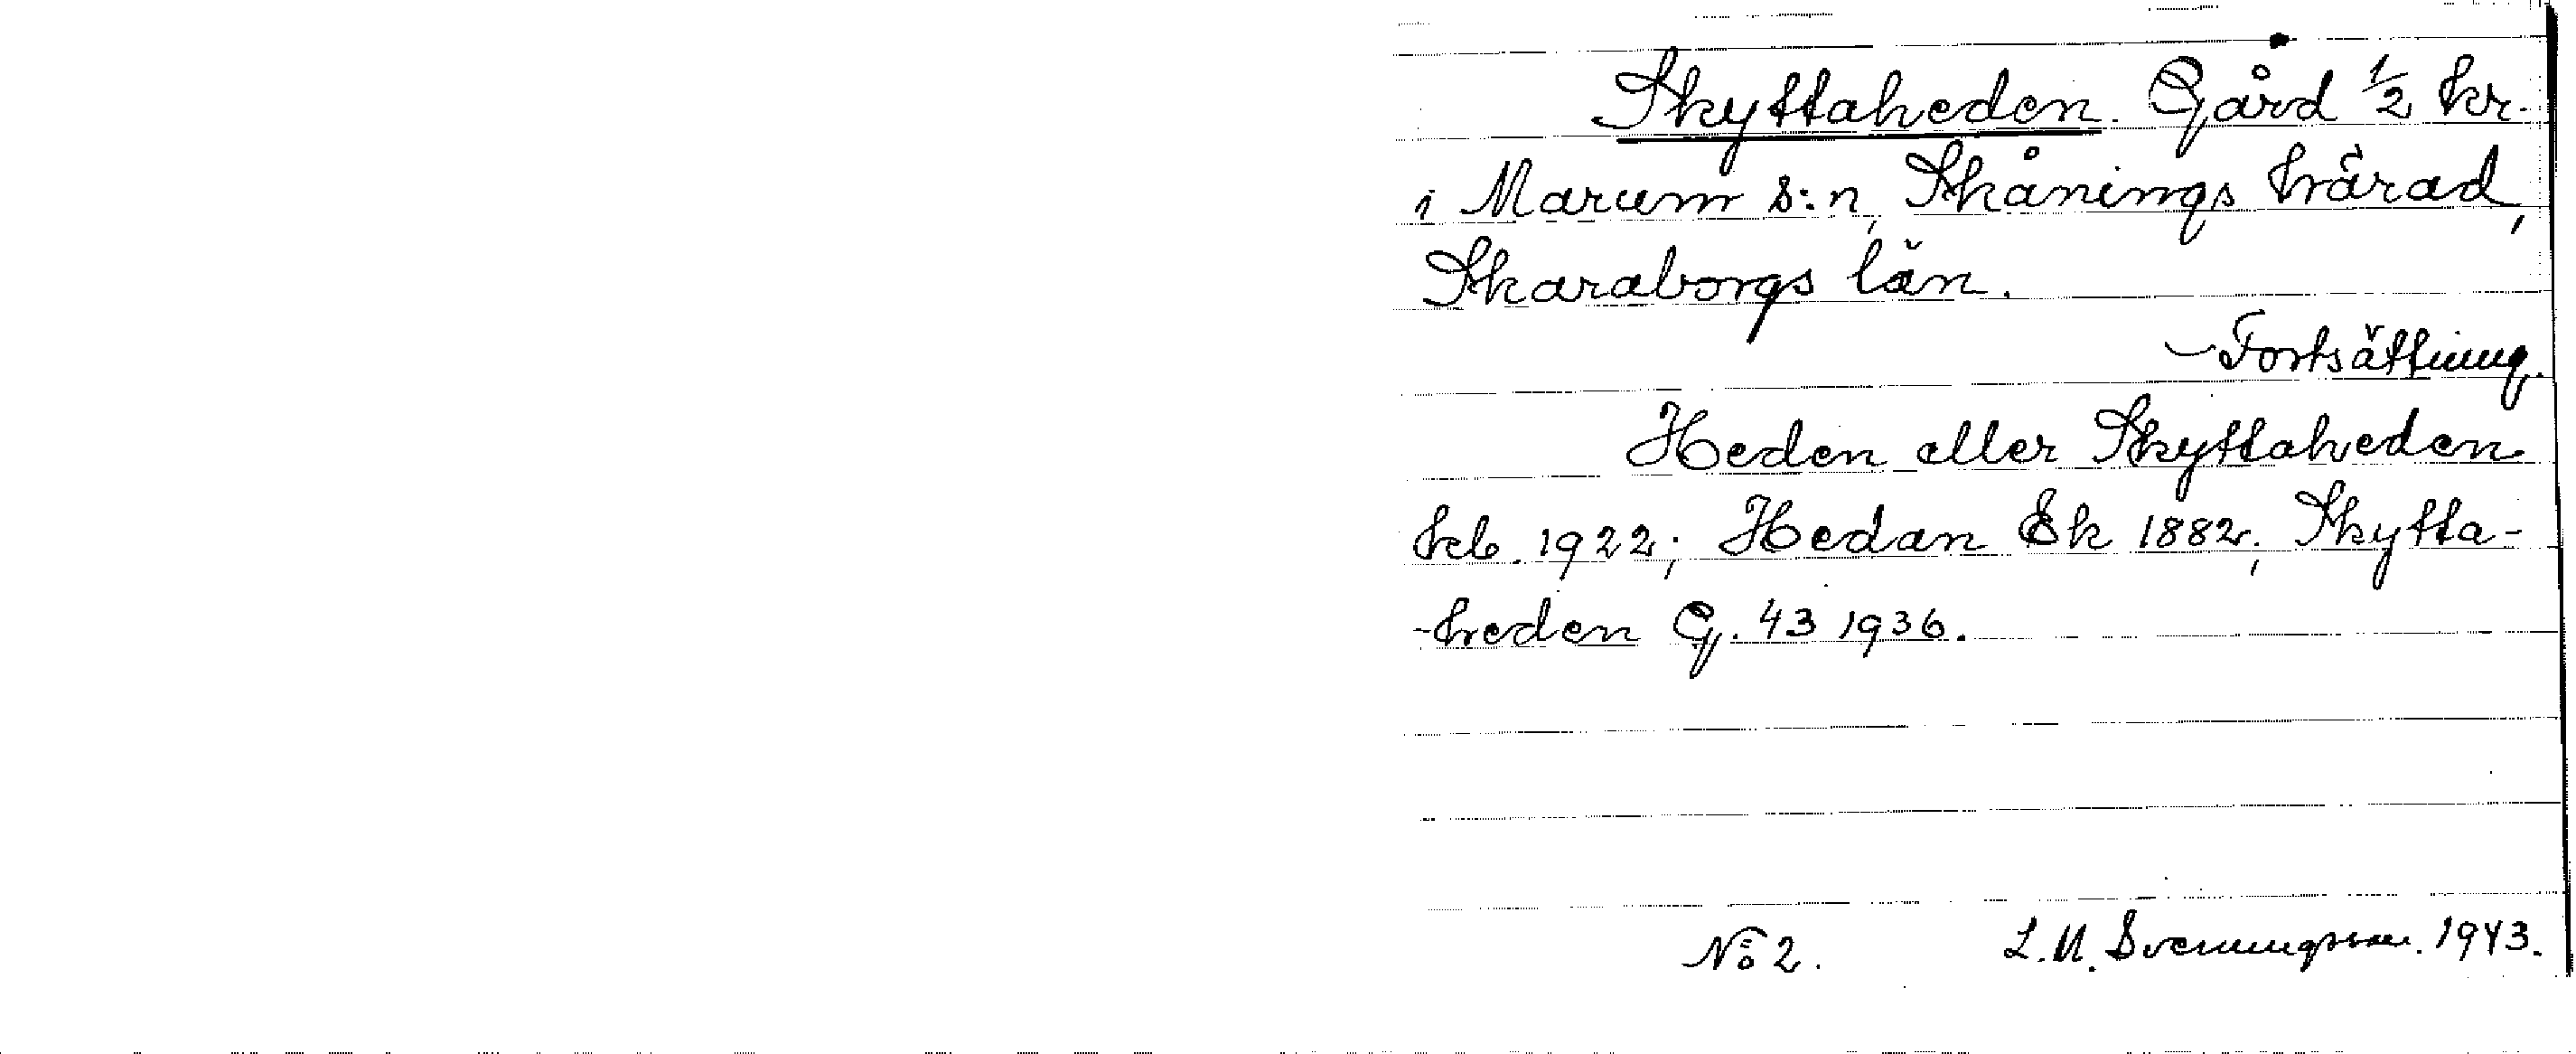 Skyttaheden. Gård 1/2 kr.
i Marum s:n, Skånings härad,
Skaraborgs län.
- Fortsättning.
Heden eller Skyttaheden
kb. 1922; Hedan Ek 1882; Skytta-
-heden G. 43 1936.
No 2. L.M. Svenungsson. 1943.